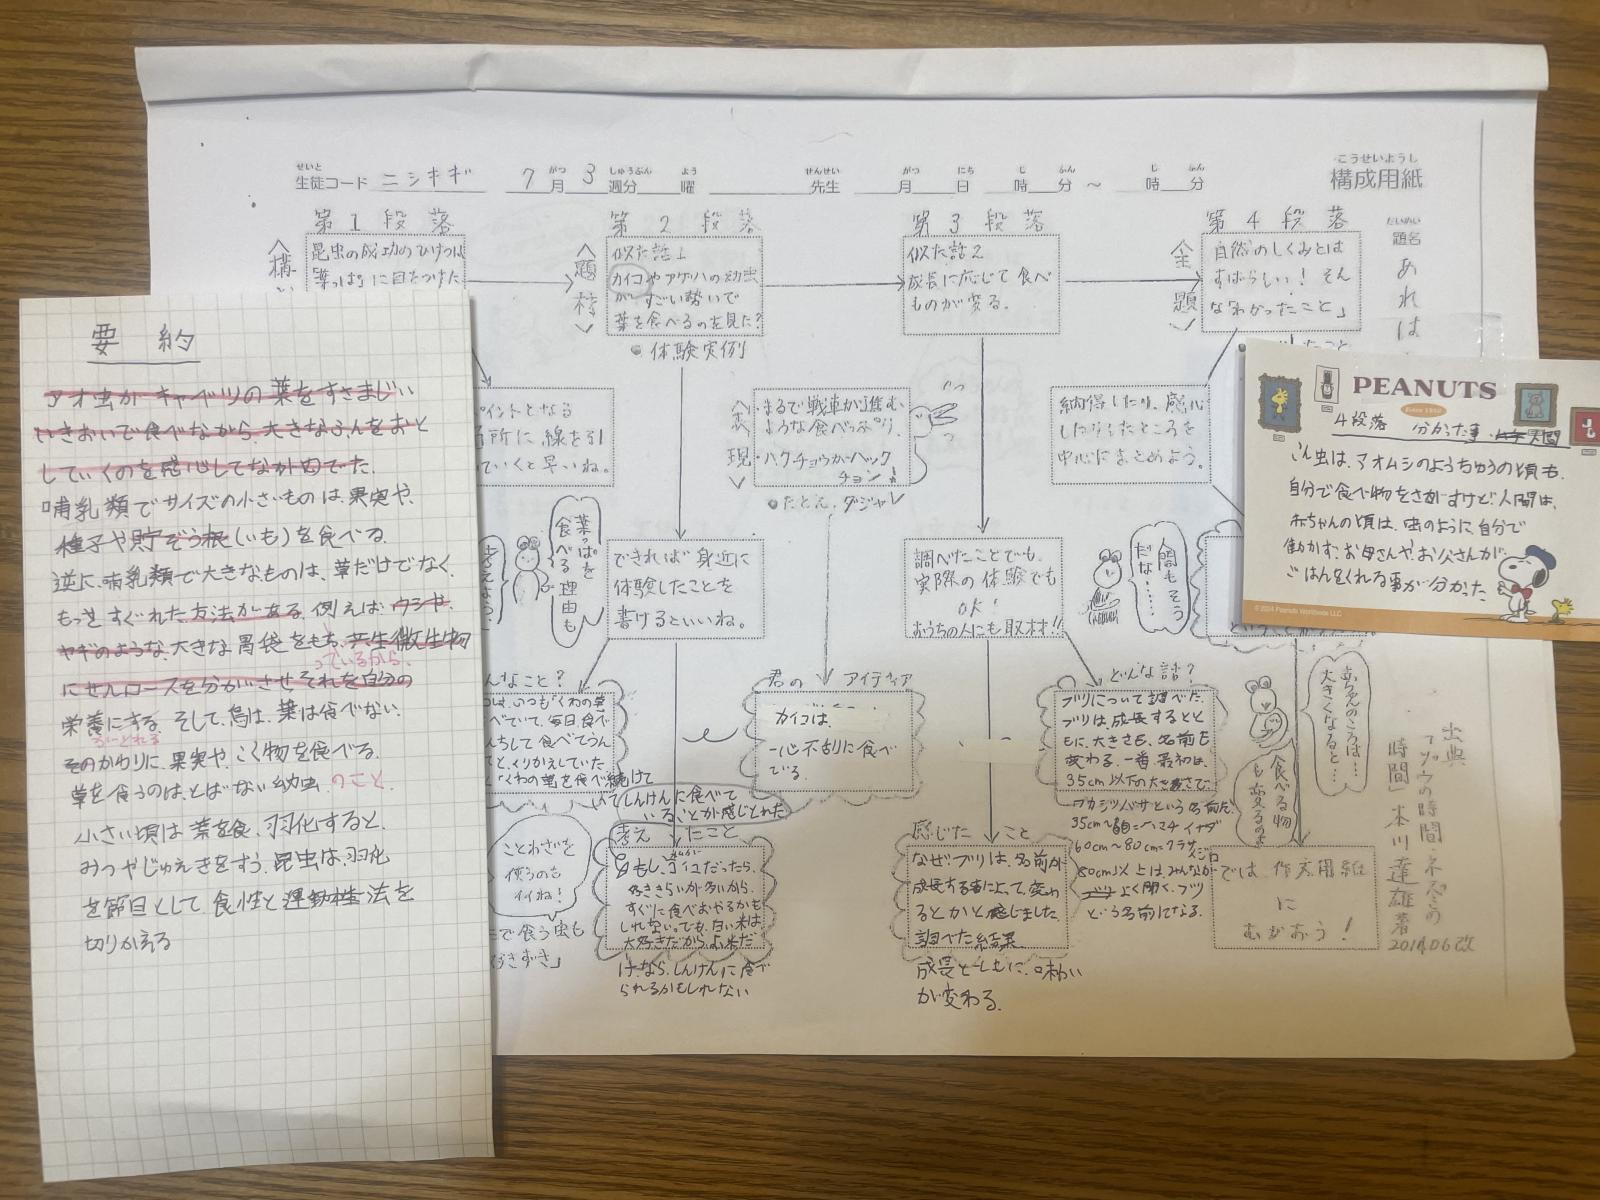 こうせいようし
構成用紙
せいと
生徒コード ニシキギ 7月 3週分 曜 先生 月 日 時 分 ～ 時 分
がつ しゅうぶん よう せんせい がつ にち じ ふん じ ふん
だいめい
題名
あれは
第1段落
昆虫の成功のひけつは
「葉っぱ」に目をつけた
第2段落
似た話1
カイコやアゲハの幼虫
がすごい勢いで
葉を食べるのを見た?
・体験実例
第3段落
似た話2
成長に応じて食べ
ものが変る.
第4段落
自然のしくみとは
すばらしい! そん
な「わかったこと」
<題材>
ポイントとなる
に線を引
いていくと早いね。
<表現>
・まるで戦車が進む
ような食べっぷり.
・ハクチョウがハック
チョン!
・たとえ.ダジャレ
納得したり、感心
したりしたところを
中心にまとめよう。
葉っぱを
食べる理由も
考えよう.
できれば身近に
体験したことを
書けるといいね。
調べたことでも.
実際の体験でも
OK!
おうちの人にも取材!!
人間もそう
だな……
んなこと?
いつもくわの葉
べていて、毎日、食べ
んちして食べてうん
てと、くりかえしていた.
くわの葉を食べ続けて
いてしんけんに食べて
いることが感じとれた
君の アイディア
カイコは、
一心不乱に食べ
ている.
どんな話?
ブリについて調べた.
ブリは、成長するとと
もに、大きさも、名前も
変わる.一番、最初は、
35cm以下の大きさで
ワカシツバサという名前だ.
60cm～80cm=
80cm以上は、みんなが
よく聞く、ブリ
という名前になる.
赤ちゃんのころは…
大きくなると…
食べる物
も変るのよ
ことわざを
使うのも
イイね!
で食う虫も
好きずき」
考えたこと
もし、カイコだったら、
好ききらいが多いから.
すぐに食べおやるかも
しれない。でも、白い米は
大好きだから.お米だ
け.なら、しんけんに食べ
られるかもしれない
感じたこと
なぜ、ブリは、名前が
成長する事によって、変わ
るとかと感じました.
調べた結果
成長とともに、味わい
が変わる.
では 作文用紙
に
むかおう!
出典
「ゾウの時間・ネズミの
時間」本川達雄著
2014.06改
要約
アオ虫がキャベツの葉をすさまじい
いきおいで食べながら.大きなふんをおと
していくのを感心してながめでた.
哺乳類でサイズの小さいものは、果実や、
種子や貯ぞう根(いも)を食べる.
逆に、哺乳類で大きなものは、草だけでなく、
もっとすぐれた方法がある.例えばウシや.
ヤギのような、大きな胃袋をもち、共生微生物
っているから、
にセルロースを分かいさせそれを自分の
栄養にする.そして、鳥は、葉は食べない.
がとれる
そのかわりに、果実や、こく物を食べる.
草を食うのは、とばない幼虫.のこと.
小さい頃は葉を食、羽化すると、
みつやじゅえきをすう.昆虫は、羽化
を節目として食性と運動法を
切りかえる
PEANUTS
Since 1950
4段落 分かった事・人間
こん虫は、アオムシのようちゅうの頃も、
自分で食べ物をさがすけど、人間は、
赤ちゃんの頃は、虫のように自分で
動かず、お母さんや、お父さんが、
ごはんをくれる事が分かった
© 2024 Peanuts Worldwide LLC